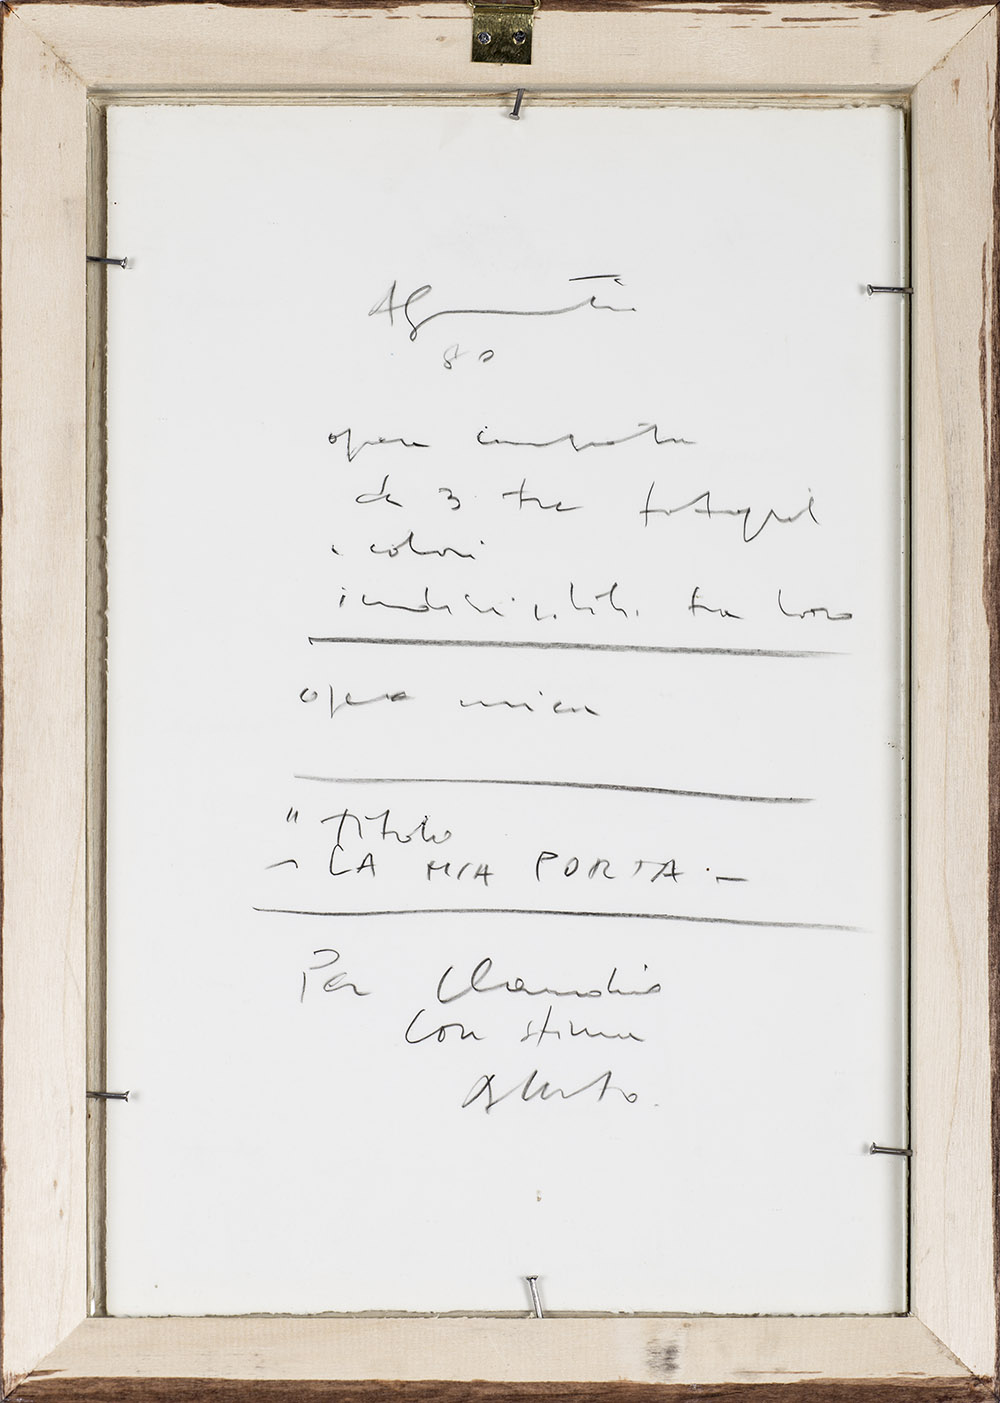 80
opera composta
da 3 tre fotografie
a colori
indivisibili tra loro
opera unica
" titolo
- LA MIA PORTA. -
Per Claudio
con stima
Alberto.